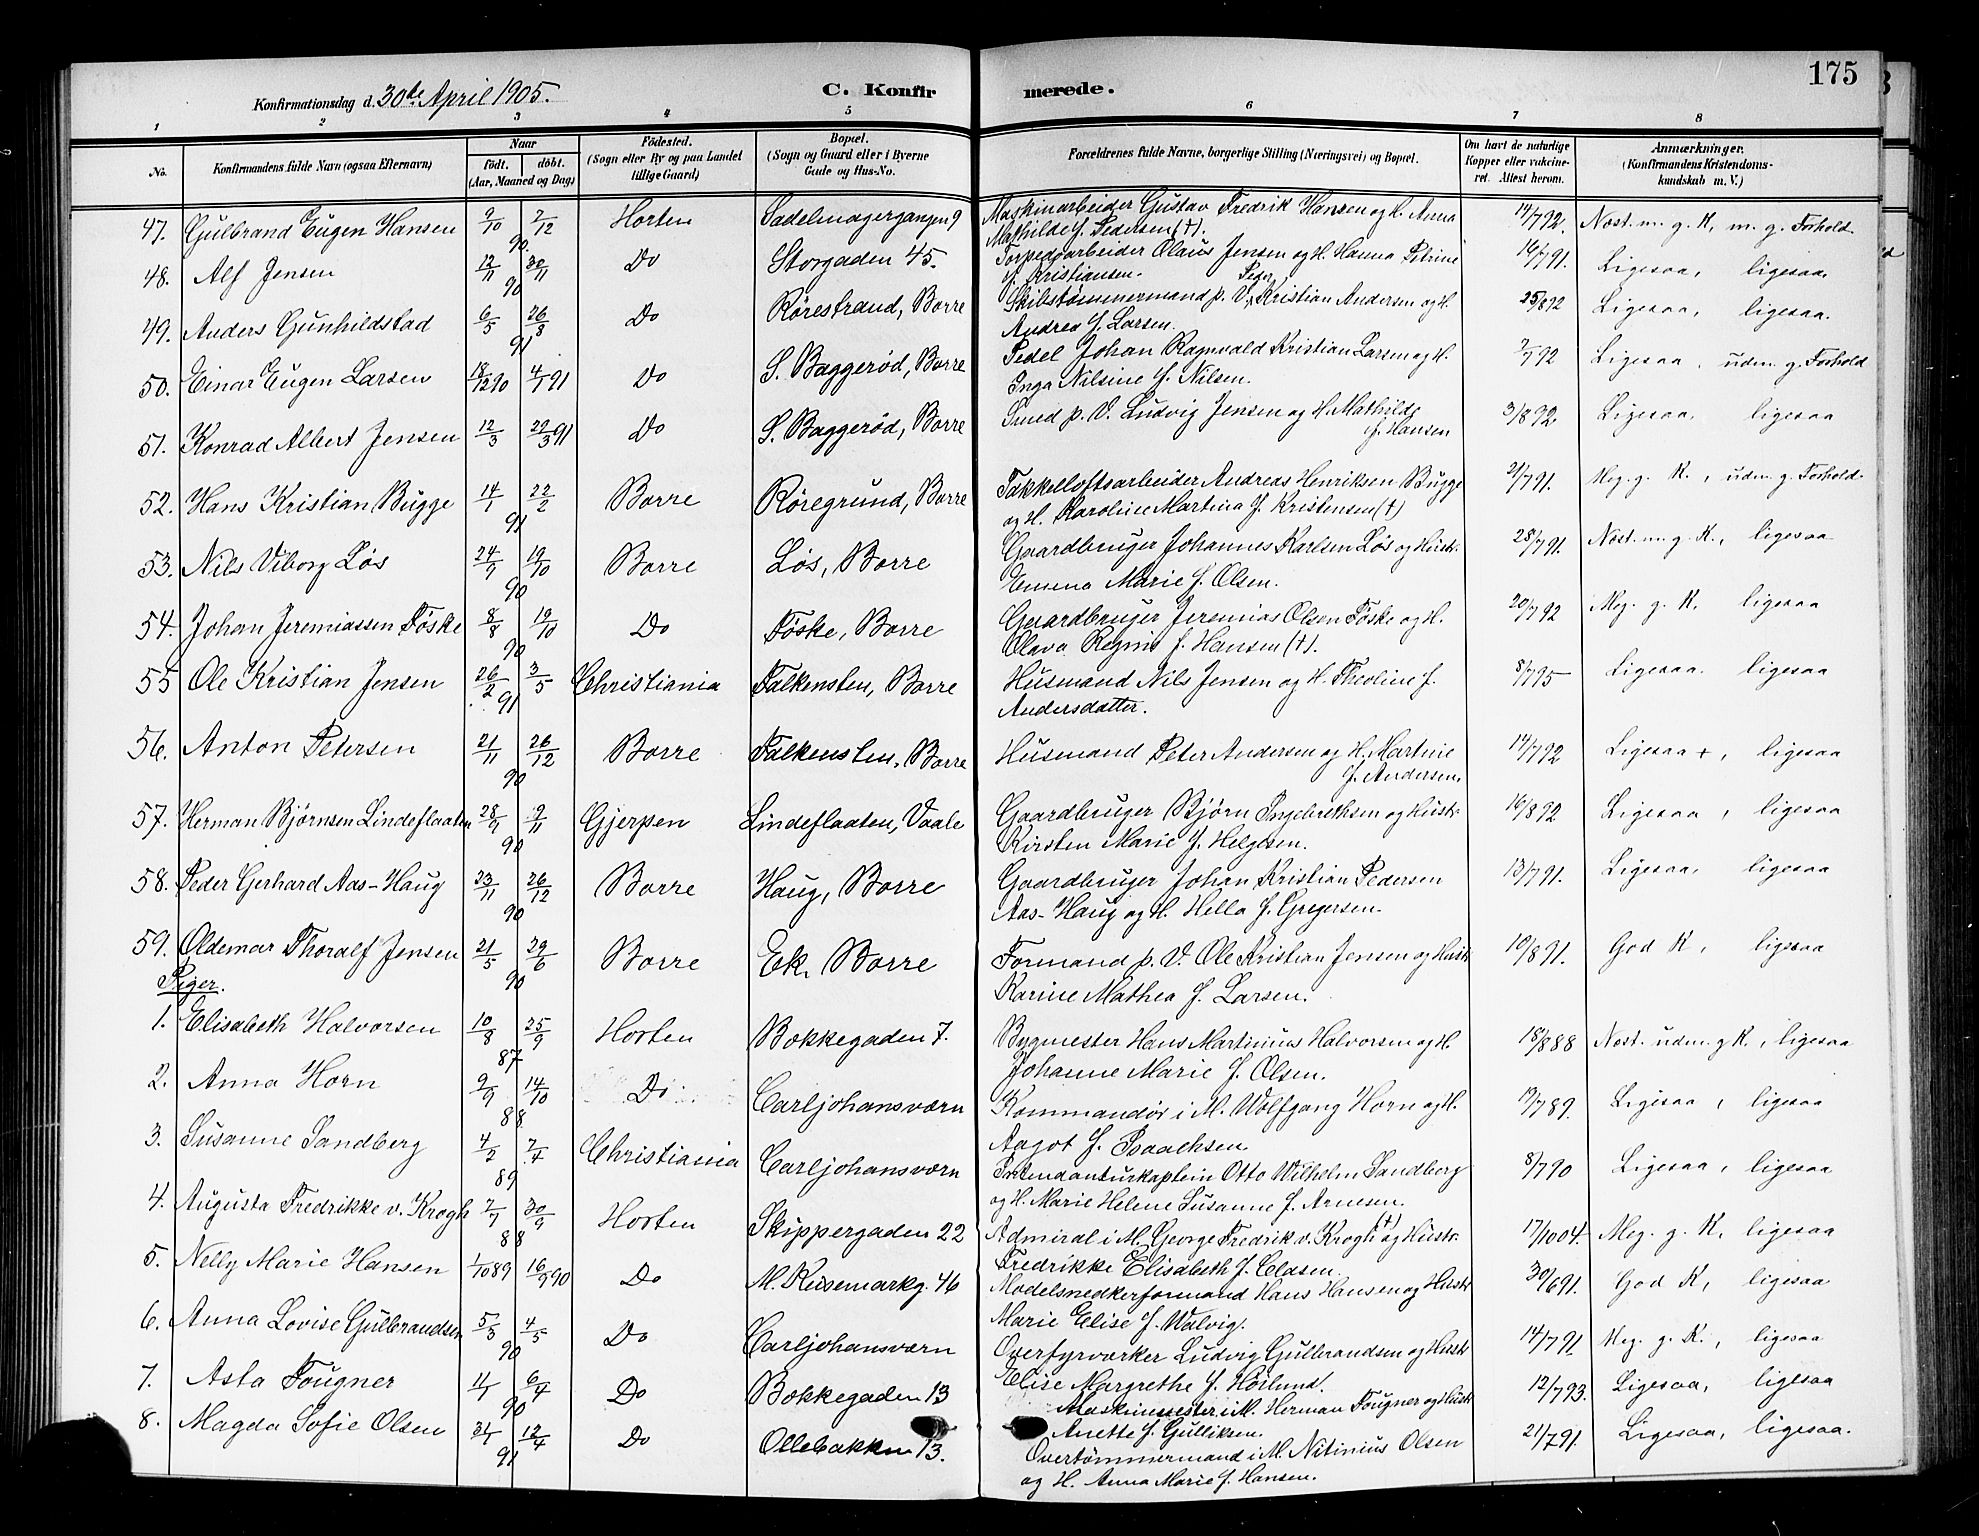 175
Konfirmationsdag d. 30de April 1905. C. Konfirmerede.
1 2 3 4 5 6 7 8
No. Konfirmandens fulde Navn (ogsaa Efternavn) Naar født. døbt. (Aar, Maaned og Dag) Fødested. (Sogn eller By og paa Landet tillige Gaard) Bopæl. (Sogn og Gaard eller i Byerne Gade og Hus-No. Forældrenes fulde Navne, borgerlige Stilling (Næringsvei) og Bopæl. Om havt de naturlige Kopper eller vakcineret. Attest herom. Anmærkninger. (Konfirmandens Kristendomskundskab m. V.)
47. Gulbrand Eugen Hansen 9/10 7/12 90 Horten Sadelmagergangen 9 Maskinarbeider Gustav Fredrik Hansen og H. Anna
Mathilde f. Pedersen (†). 14/7 92. Næst. m. g. K, m. g. Forhold.
48. Alf Jensen 12/11 30/11 90 Do Storgaden 45. Torpedoarbeider Olaus Jensen og H. Hanna Petrine
f. Kristiansen. 16/7 91. Ligesaa, ligesaa.
49. Anders Gunhildstad 6/5 26/8 91 Do Rørestrand, Borre Skibstømmermand p. V. Peder Kristian Andersen og H.
Andrea f. Larsen. 25/8 92 Ligesaa, ligesaa.
50. Einar Eugen Larsen 18/12 90 4/1 91 Do S. Baggerød, Borre Pedel Johan Ragnvald Kristian Larsen og H.
Inga Nilsine f. Nilsen. 7/7 92 Ligesaa, udm. g. Forhold
51. Konrad Albert Jensen 12/3 29/3 91 Do S. Baggerød, Borre Smed p. V. Ludvig Jensen og H. Mathilde
f. Hansen 3/8 92. Ligesaa. ligesaa
52. Hans Kristian Bugge 14/1 22/2 91 Borre Røregrund, Borre Takkelloftsarbeider Andreas Henriksen Bugge
og H. Karoline Martina f. Kristensen (†) 21/7 91. Meg. g. K., udm. g. Forhold.
53. Nils Viborg Løs 24/7 19/10 90 Borre Løs, Borre Gaardbruger Johannes Karlsen Løs og Hustr.
Emma Marie f. Olsen. 28/7 91. Næst. m. g. K., ligesaa
54. Johan Jeremiassen Føske 8/8 19/10 90 Do Føske, Borre Gaardbruger Jeremias Olsen Føske og H.
Olava Regine f. Hansen (†). 20/7 92 Meg. g. K. ligesaa
55 Ole Kristian Jensen 26/2 3/5 91 Christiania Falkensten, Borre Husmand Nils Jensen og H. Theoline f.
Andersdatter. 8/7 95 Ligesaa. ligesaa
56. Anton Petersen 21/11 26/12 90 Borre Falkensten, Borre Husmand Peter Andersen og H. Martine
f. Andersen. 14/7 92 Ligesaa +, ligesaa
57. Herman Bjørnsen Lindeflaaten 28/9 9/11 90 Gjerpen Lindeflaaten, Vaale Gaardbruger Bjørn Ingebrethsen og Hustr.
Kirsten Marie f. Helgesen. 16/8 92. Ligesaa, ligesaa
58. Peder Gerhard Aas-Haug 23/11 26/12 90 Borre Haug, Borre Gaardbruger Johan Kristian Pedersen
Aas-Haug og H. Hella f. Gregersen. 13/7 91. Ligesaa, ligesaa
59. Oldemar Thoralf Jensen 21/5 29/6 90 Borre Ek, Borre Formand p. V. Ole Kristian Jensen og Hustr
Karine Mathea f. Larsen. 10/8 91. God K, ligesaa
Piger.
1. Elisabeth Halvorsen 10/8 25/9 87 Horten Bokkegaden 7. Bygmester Hans Martinius Halvorsen og H.
Johanne Marie f. Olsen. 18/8 88 Næst. udm. g K., ligesaa
2. Anna Horn 9/9 14/10 88 Do Carljohansværn Kommandør i M. Wolfgang Horn og H.
Aagot f. Isaachsen 13/7 89. Ligesaa, ligesaa
3. Susanne Sandberg 4/2 7/4 89 Christiania Carljohansværn Intendanturkaptein Otto Wilhelm Sandberg
og H. Marie Helene Susanne f. Arnesen. 8/7 90 Ligesaa, ligesaa
4. Augusta Fredrikke v. Krogh 7/7 30/9 88 Horten Skippergaden 22 Admiral i M. George Fredrik v. Krogh (†) og Hustr.
Fredrikke Elisabeth f. Clasen. 17/10 04. Meg. g. K, ligesaa
5. Nelly Marie Hansen 1/10 89 16/9 90 Do M. Reisemarkg. 46 Modelsnedkerformand Hans Hansen og Hustr
Marie Elise f. Walvig. 30/6 91. God K, ligesaa
6. Anna Lovise Gulbrandsen 5/3 4/5 90 Do Carljohansværn Overfyrværker Ludvig Gulbrandsen og Hustr
Elise Margrethe f. Hørlund. 14/7 91 Meg. g. K., ligesaa
7. Asta Fougner 11/1 6/4 90 Do Bokkegaden 13 Maskinmester i M. Herman Fougner og Hustr
Anette f. Gulliksen. 12/7 93. Ligesaa, ligesaa
8. Magda Sofie Olsen 31/1 12/4 91 Do Ollebakken 13. Overtømmermand i M. Nitinius Olsen
og H. Anna Marie f. Hansen. 21/7 91. Ligesaa, ligesaa.